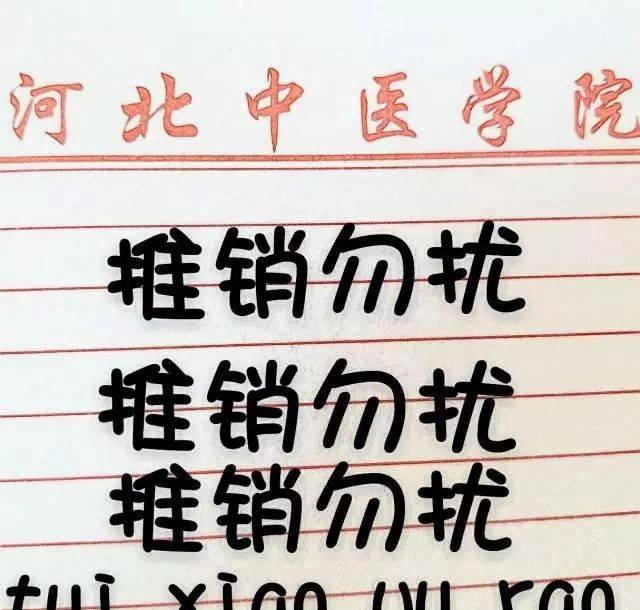 河北中医学院
推销勿扰
推销勿扰
推销勿扰
tui xiao wu rao